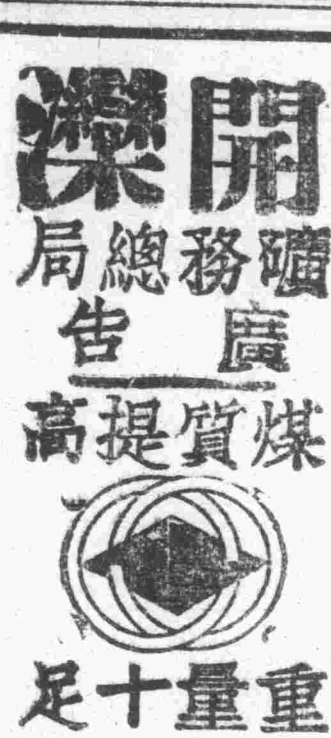 開灤
礦務總局
廣告
煤質提高
重量十足